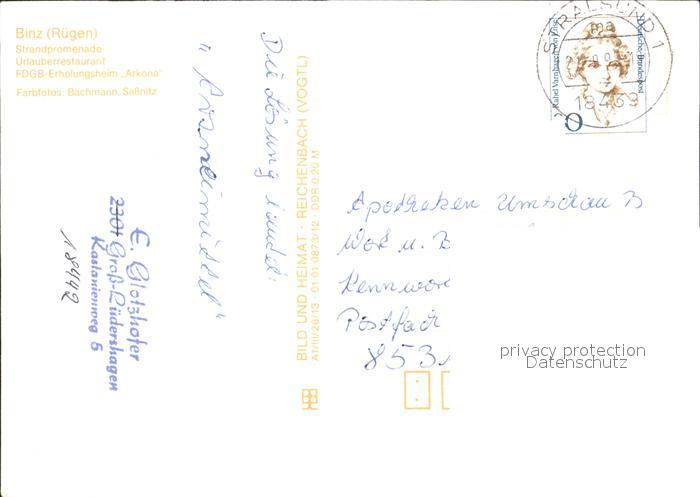 Binz (Rügen)
Strandpromenade
Urlauberrestaurant
FDGB-Erholungsheim „Arkona"
Farbfotos: Bachmann, Saßnitz
Die Lösung lautet:
E. Glotzhofer
2301 Groß-Lüdershagen
Kastanienweg 5
18442
BILD UND HEIMAT · REICHENBACH (VOGTL)
A1/III/26/13 · 01 01 0873/12 · DDR 0,20 M
STRALSUND 1
18439
Rahel Varnhagen von Ense
Deutsche Bundespost
Apotheken Umschau B
Wort u. B
Kennwor
Postfach
853
privacy protection
Datenschutz